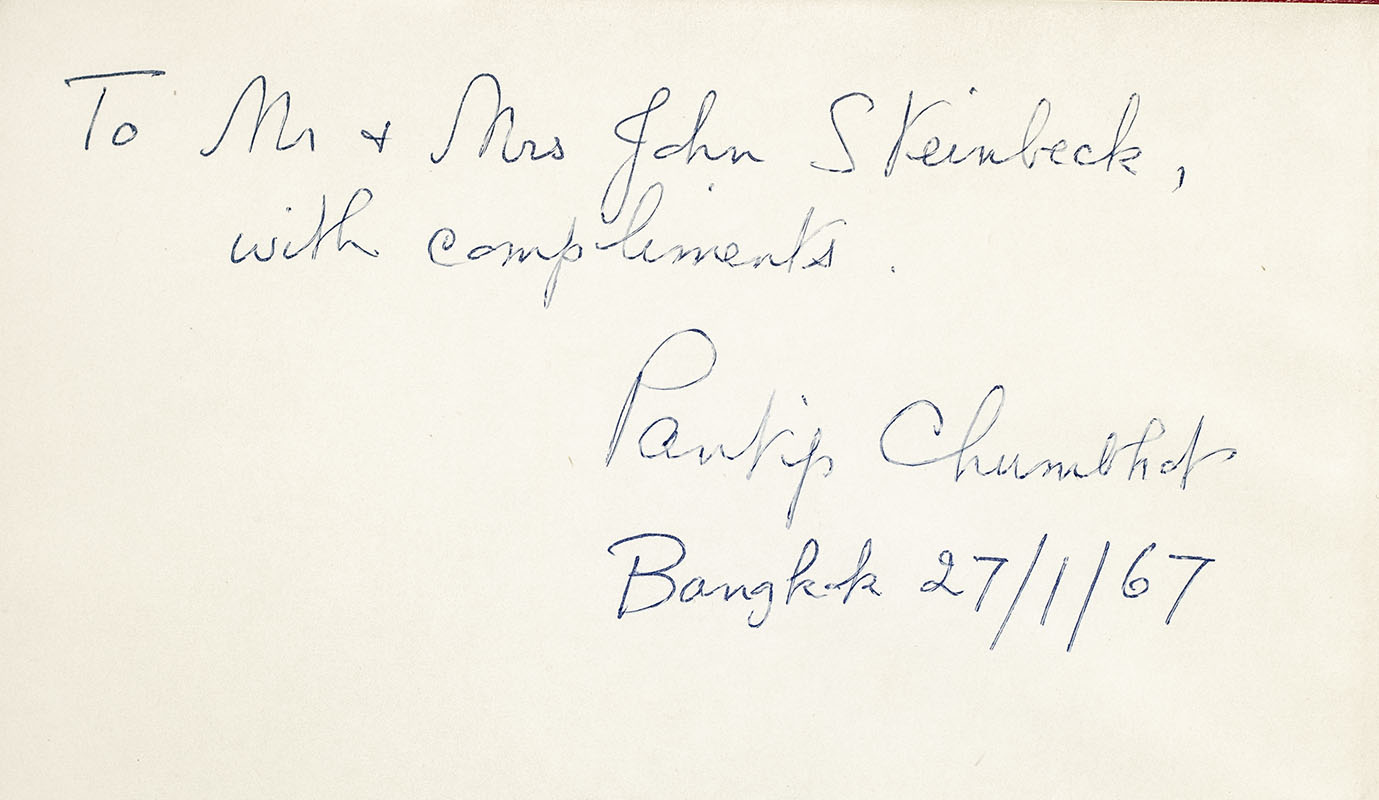 To Mr & Mrs John Steinbeck,
with compliments.
Pantip Chumbhot
Bangkok 27/1/67